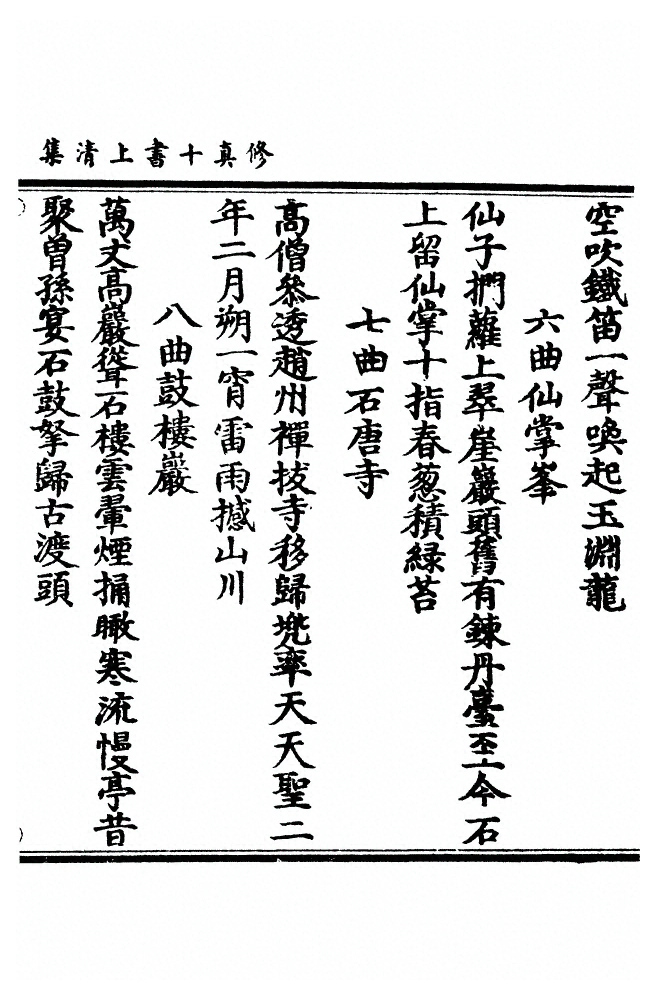 修真十書上清集
空吹鐵笛一聲喚起玉淵龍
六曲仙掌峯
仙子捫蘿上翠崖巖頭舊有鍊丹臺至今石
上留仙掌十指春葱積緑苔
七曲石唐寺
高僧叅透趙州禪拔寺移歸兠率天天聖二
年二月朔一宵雷雨撼山川
八曲鼓樓巖
萬丈高巖聳石樓雲暈煙捅瞰寒流慢亭昔
聚曾孫宴石鼓拏歸古渡頭